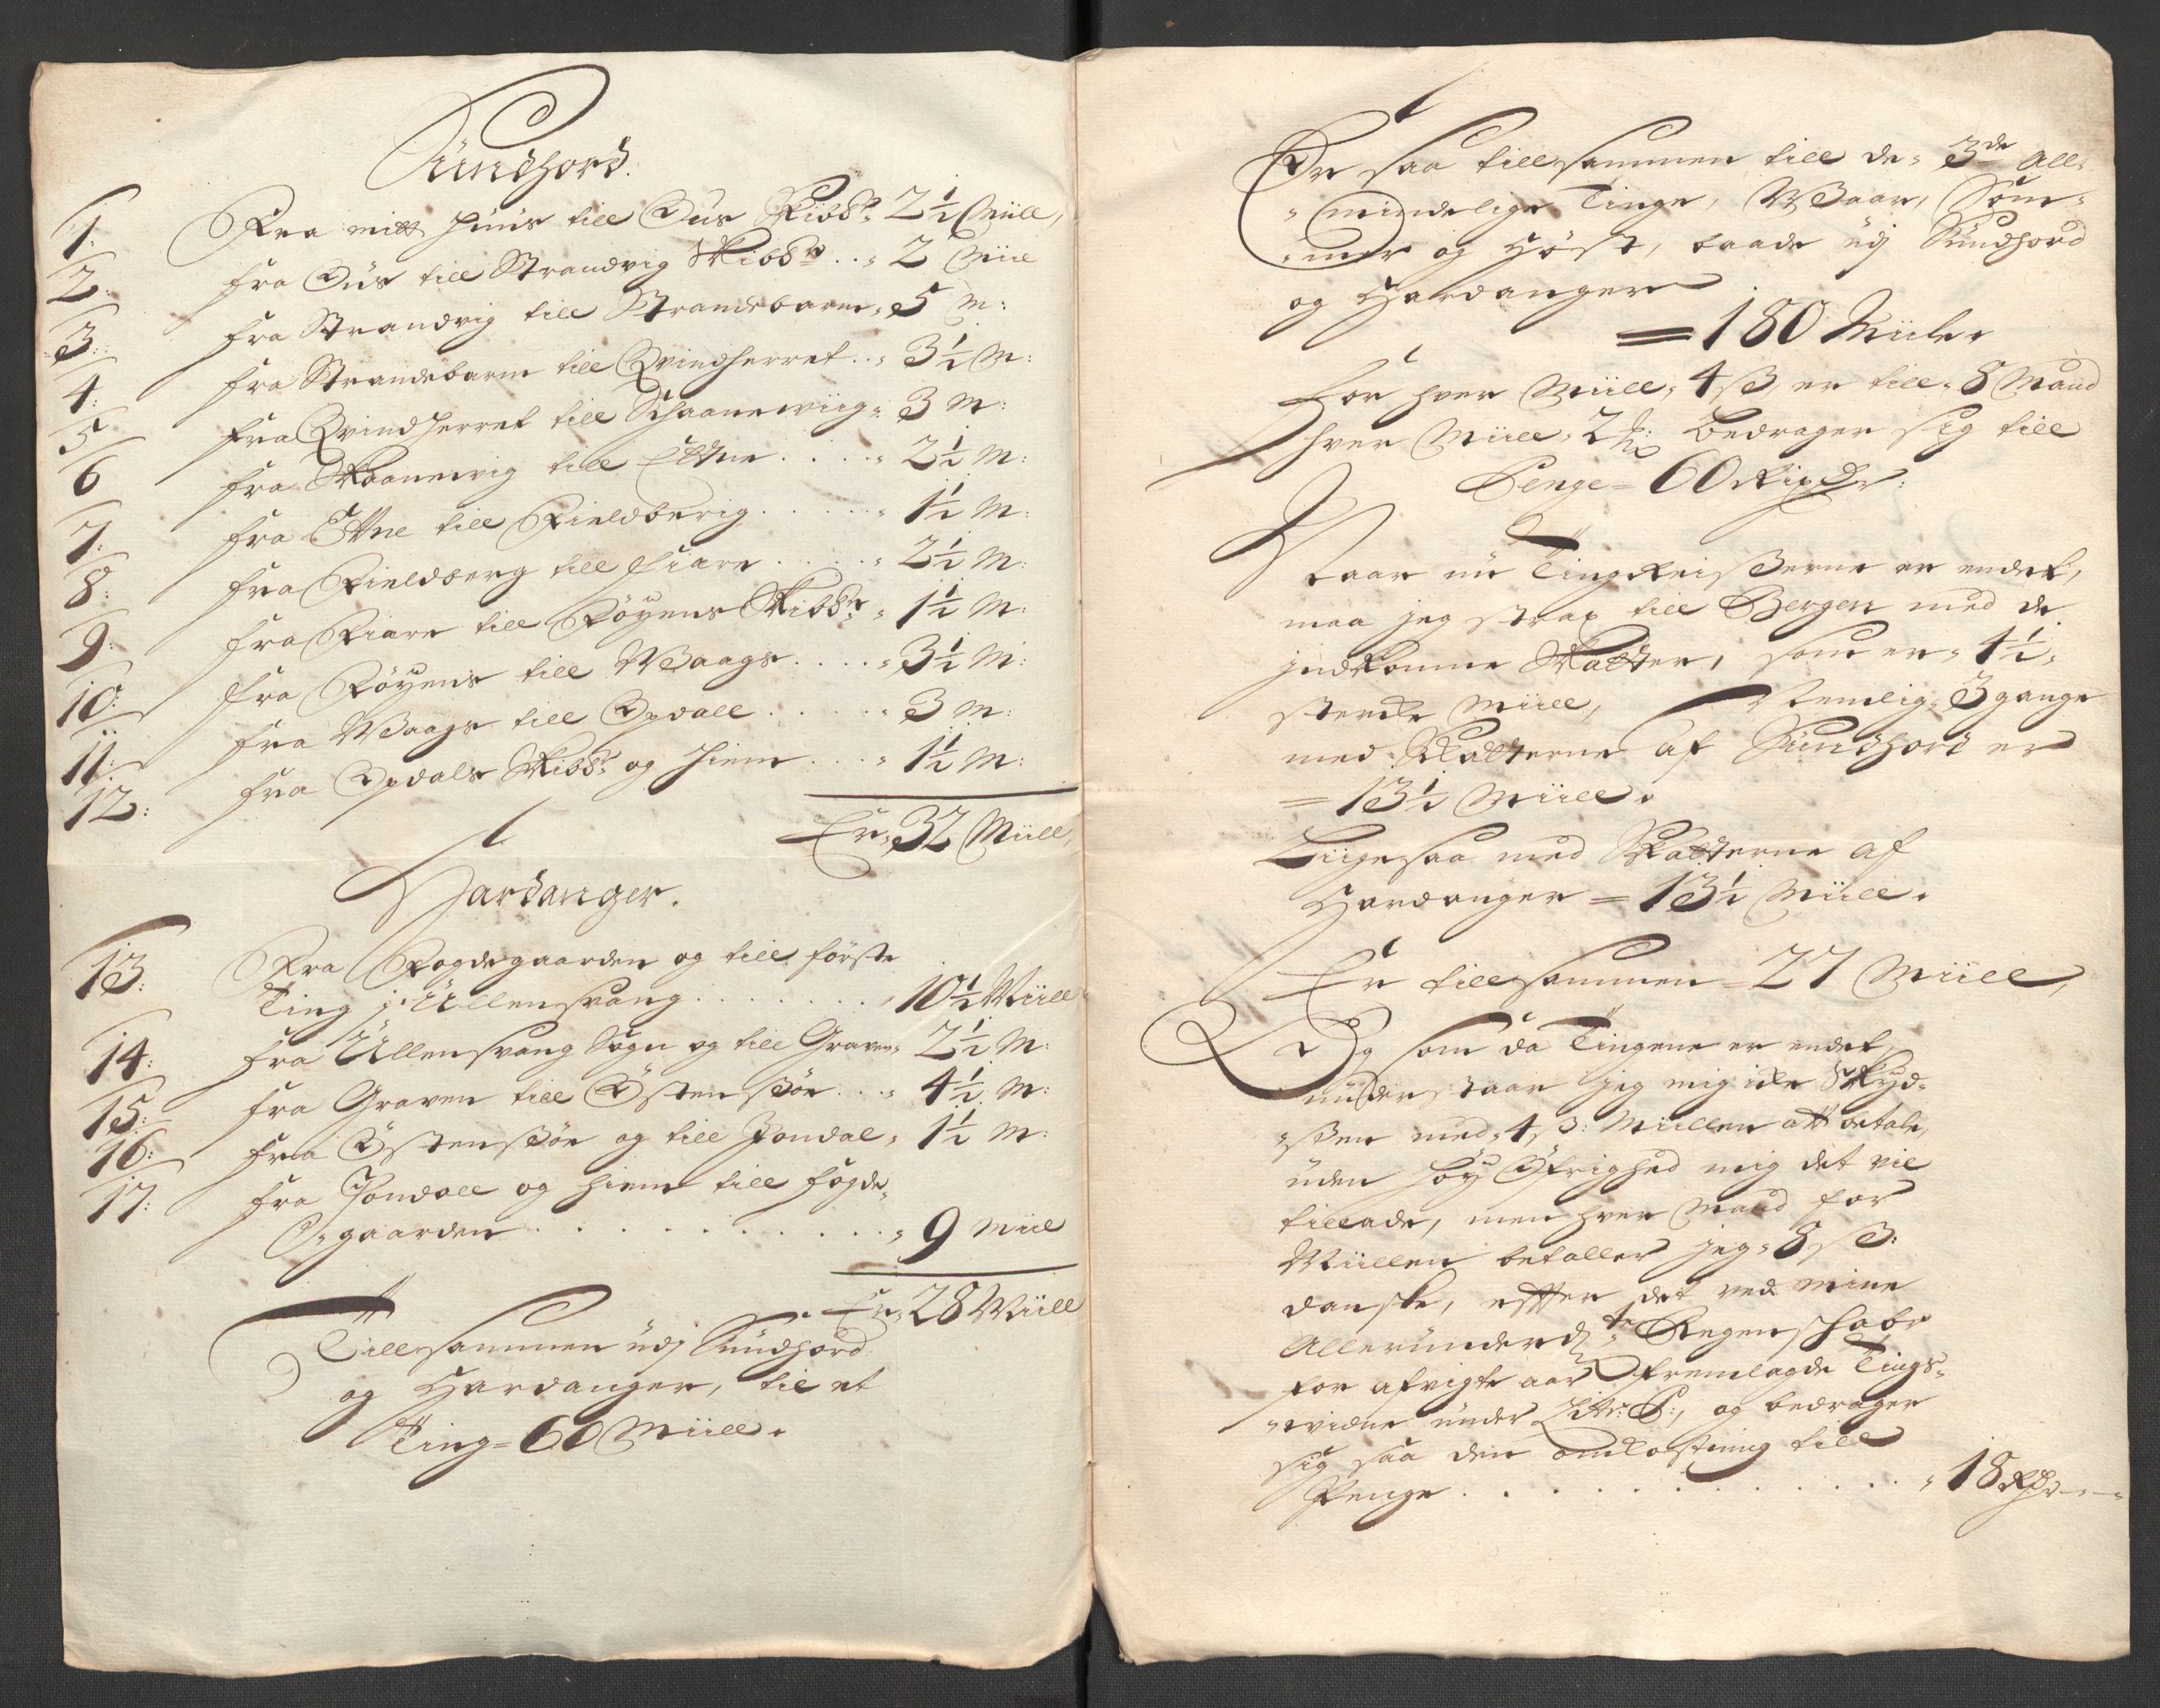 Sündhord.
1: Fra mitt Huus till Ous Skibbr: 2½ Miill,
2: fra Ous till Strandvig Skibbr: .. 2 Miil
3: fra Strandvig till Strandebarm, 5 M:
4: fra Strandebarm till Qvindherret .. 3½ M:
5 fra Qvindherret till Schaanewiig 3 M:
6 fra Skaanevig till Ettne .... 2½ M:
7: fra Ettne till Fieldberig ..... 1½ M:
8: fra Fieldberg till Fiære .... 2½ M:
9: fra Fiære till Föyens Skibbr: 1½ M:
10: fra Föyens till Waags .... 3½ M:
11: fra Waags till Opdall ..... 3 M:
12: fra Opdals Skibbr: og hiem ... 1½ M:
Er 32 Miill,
Hardanger.
13: Fra Fogdegaarden og till förste
Ting j Ullensvang ....... 10½ Miill
14: fra Ullensvang Sogn og till Graven 2½ M:
15: fra Graven till Östensöe ... 4½ M:
16: fra Östensöe og till Jondal, 1½ M:
17: fra Jondall og hiem till fogde
gaarden ........... 9 Miil
Er 28 Miill
Tillsammen udj Sündhord
og Hardanger, til et
Ting = 60 Miill.
Er saa tillsammen till de 3de All-
mindelige Tinge, Waar, Som-
mer og Höst, baade udj Sündhord
og Hardanger
= 180 Miile
For hver Miill, 4 ß er till 8 Mand
hver Miill 2 Bedrager sig till
Penge = 60 Rixdr:
Naar nu Tingreißerne er endet,
maa jeg strax till Bergen med de
indkomne Skatter, som er 4½
sterke Miill, Nemlig 3 gange
med Skatterne af Sündhord er
= 13½ Miill.
Liigesaa med Skatterne af
Hardanger = 13½ Miill.
Er tillsammen = 27 Miill,
Og som da Tingene er endet,
understaar jeg mig icke Skyd-
ßen med 4 ß: Miilen att betale,
uden höy Öfrighed mig det vil
tillade, men hver Mand for
Miillen betaller jeg 8 ß:
danske, effter det ved mine
Allerunderd:te Regenschabr
for afvigte aar fremlagde Tings-
widne under Litr: P:, og bedrager
sig saa den omkostning till
Penge ............ 18 Rdr - -